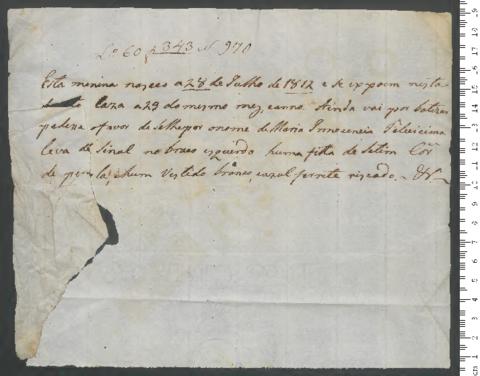 Lº 60 f 343 N 970
Esta menina nasceo a 28 de Julho de 1812 e se expoem nesta
Santa Caza a 29 do mesmo mez, e anno. Ainda vai por batizar
pedese o favor de se lhe por o nome de Maria Innocencia Feliscima
leva de Sinal no braço esquerdo huma fitta de Setim Côr
de perola, e hum Vestido branco, e azul ferrete riscado.